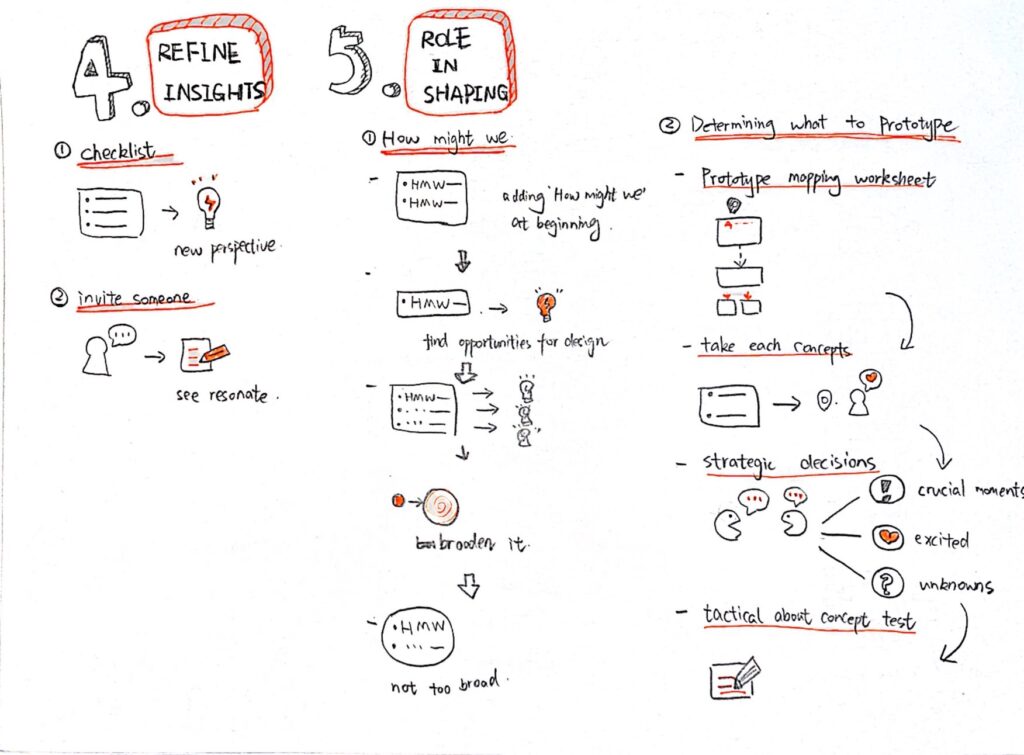 4.
REFINE
INSIGHTS
① checklist
new perspective.
② invite someone
see resonate.
5.
ROLE
IN
SHAPING
① How might we.
- • HMW—
• HMW—
adding 'How might we'
at beginning.
- • HMW—
find opportunities for design
- • HMW—
broaden it.
- • HMW
not too broad.
② Determining what to Prototype
- Prototype mapping worksheet
- take each concepts
- strategic decisions
! crucial moments
excited
? unknowns
- tactical about concept test